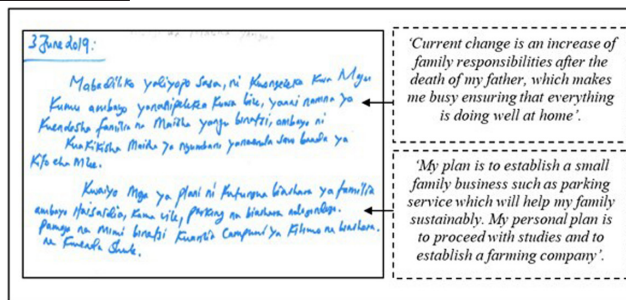 3 June 2019:
Mabadiliko yaliyopo sasa, ni Kuongezeka Kwa Mgu
Kumu ambayo yananipeleka Kuwa bize, yaani namna ya
Kuendesha familia na Maisha yangu binafsi, ambayo ni
Maisha ya nyumbani yanaenda sawa baada ya
Kifo cha
Kwaiyo ya plani ni biashara ya familia
ambayo Kama vile, parking na biashara ndogondogo.
na mimi binafsi Campuni ya Kilimo na biashara.
na Kwenda Shule.
‘Current change is an increase of
family responsibilities after the
death of my father, which makes
me busy ensuring that everything
is doing well at home’.
‘My plan is to establish a small
family business such as parking
service which will help my family
sustainably. My personal plan is
to proceed with studies and to
establish a farming company’.